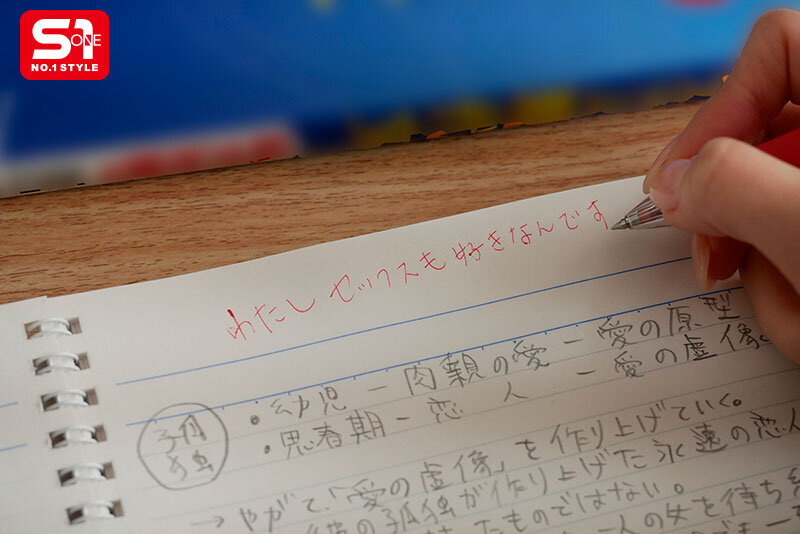 S1
ONE
NO.1 STYLE
わたし セックスも 好きなんです
・幼児 － 肉親の愛 － 愛の原型
孤独
・思春期 － 恋人 － 愛の虚像。
→ やがて、「愛の虚像」を作り上げていく。
彼の孤独が作り上げた永遠の恋人
たものではない。
一人の女を待ち